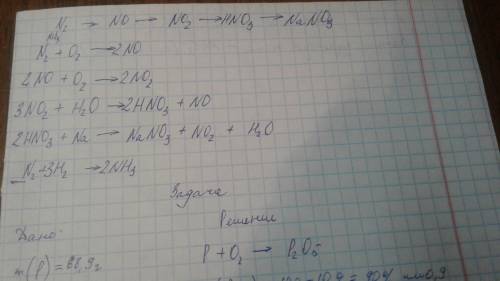 N₂ → NO → NO₂ → HNO₃ → NaNO₃
NH₃
N₂ + O₂ → 2NO
2NO + O₂ → 2NO₂
3NO₂ + H₂O → 2HNO₃ + NO
2HNO₃ + Na → NaNO₃ + NO₂ + H₂O
N₂ + 3H₂ → 2NH₃
Задача
Дано: Решение
P + O₂ → P₂O₅
m(P) =